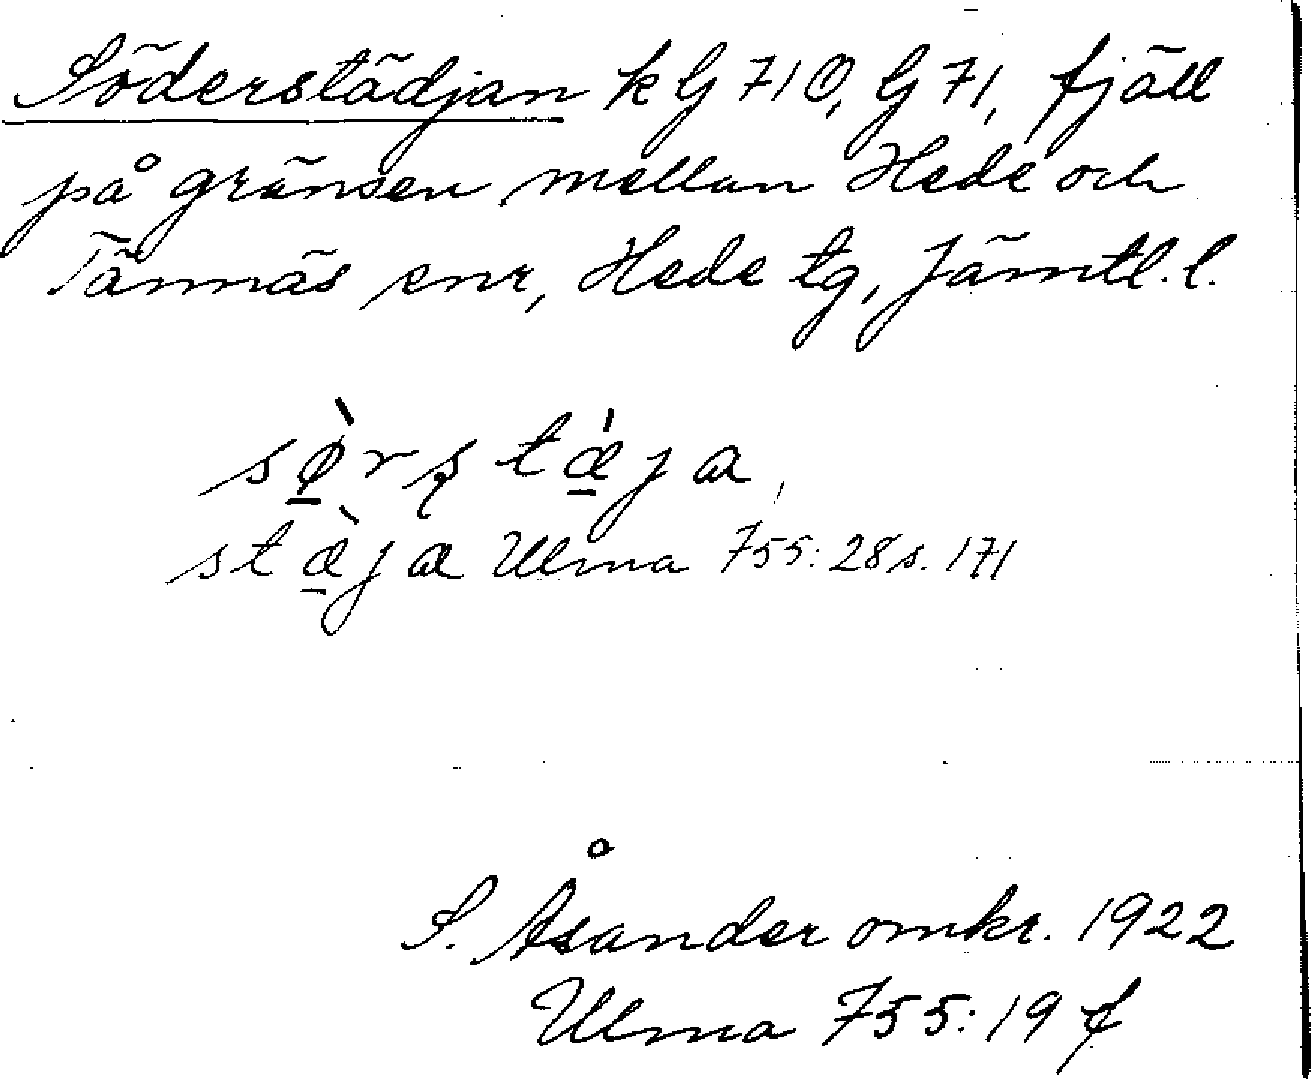 Söderstädjan k G 71 O, G 71, fjäll
på gränsen mellan Hede och
Tännäs snr, Hede tg, Jämtl. l.
sø̱̀rʂtæ̱̀ja,
stæ̱̀ja Ulma 755:28 s. 171
S. Åsander omkr. 1922
Ulma 755:19